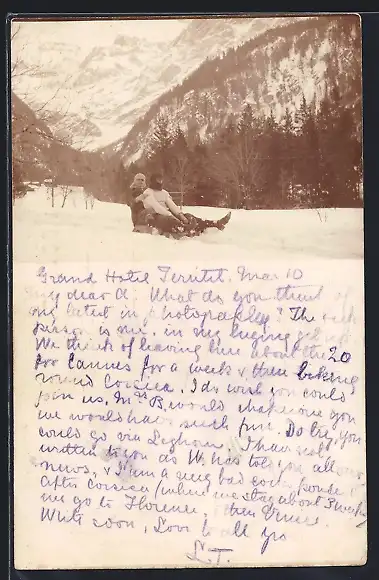 Grand Hotel Territet. Mar 10
My dear A. What do you think of
my latest in photography? The back
person is me, in my luging get up
We think of leaving here about the 20
for Cannes for a week & then biking
round Corsica. I do wish you could
join us, Mrs B. would chaperone you
we would have such fun. Do try. You
could go via Leghorn. I have not
written to you as W. has told you all our
news, & I am a very bad correspondent.
After Corsica (where we stay about 3 weeks)
we go to Florence, then Venice.
Write soon, Love to all yrs
L. T.